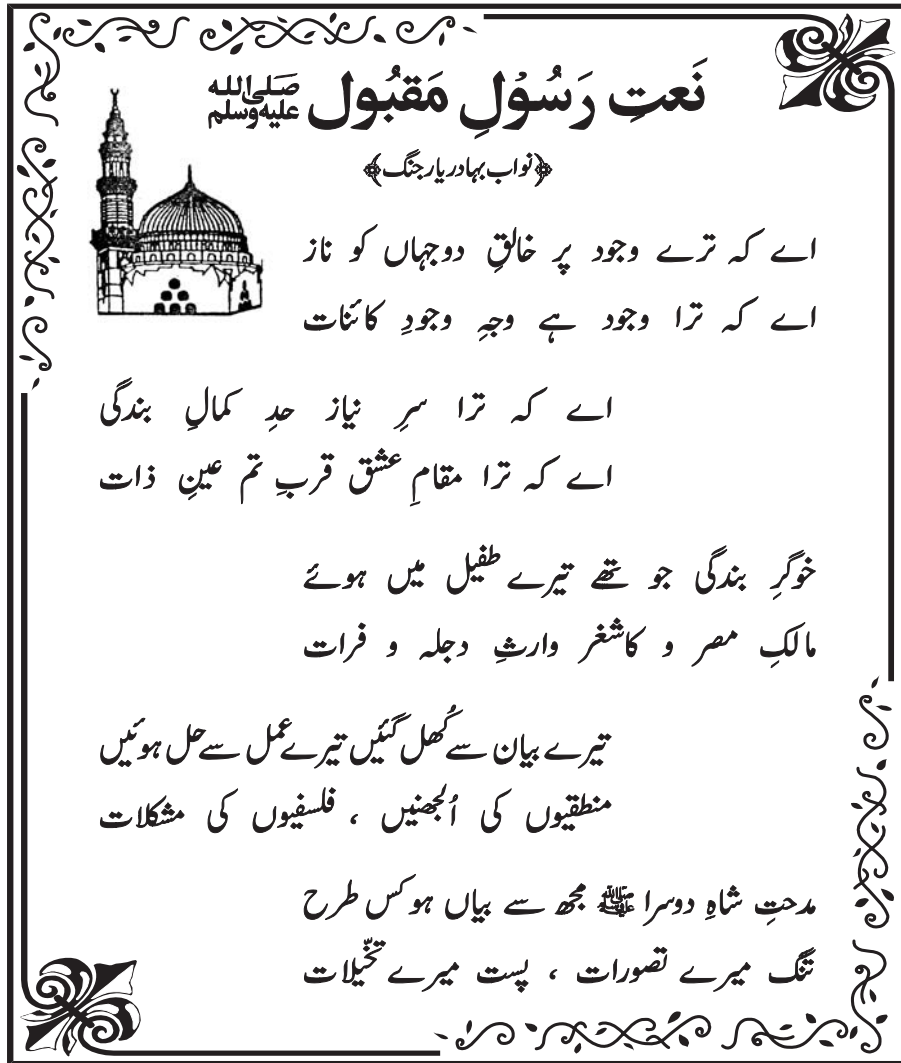 نَعتِ رَسُوْلِ مَقبُول صلی اللہ علیہ وسلم
﴿نواب بہادر یار جنگ﴾
اے کہ ترے وجود پر خالقِ دوجہاں کو ناز
اے کہ ترا وجود ہے وجہِ وجودِ کائنات
اے کہ ترا سرِ نیاز حدِ کمالِ بندگی
اے کہ ترا مقامِ عشق قربِ تم عینِ ذات
خوگرِ بندگی جو تھے تیرے طفیل میں ہوئے
مالکِ مصر و کاشغر وارثِ دجلہ و فرات
تیرے بیان سے کُھل گئیں تیرے عمل سے حل ہوئیں
منطقیوں کی اُلجھنیں ، فلسفیوں کی مشکلات
مدحتِ شاہِ دوسرا ﷺ مجھ سے بیاں ہو کس طرح
تنگ میرے تصورات ، پست میرے تخیّلات